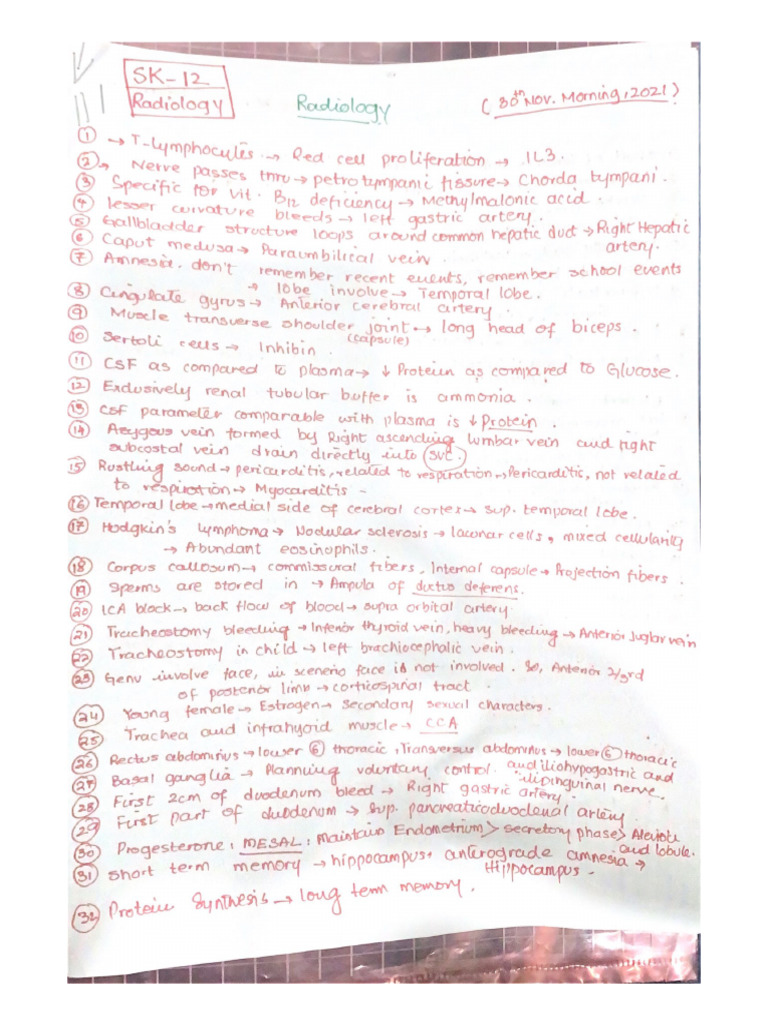 SK-12
Radiology
Radiology
(30th Nov. Morning, 2021)
① → T-Lymphocytes → Red cell proliferation → IL3.
② → Nerve passes thru → petrotympanic fissure → Chorda tympani.
③ Specific for vit. B12 deficiency → Methylmalonic acid.
④ lesser curvature bleeds → left gastric artery.
⑤ Gallbladder structure loops around common hepatic duct → Right Hepatic artery.
⑥ Caput medusa → Paraumbilical vein.
⑦ Amnesia. don't remember recent events, remember school events
→ lobe involve → Temporal lobe.
⑧ Cingulate gyrus → Anterior cerebral artery.
⑨ Muscle transverse shoulder joint → long head of biceps.
(capsule)
⑩ Sertoli cells → Inhibin
⑪ CSF as compared to plasma → ↓ Protein as compared to Glucose.
⑫ Exclusively renal tubular buffer is ammonia.
⑬ CSF parameter comparable with plasma is ↓ Protein.
⑭ Azygous vein formed by Right ascending lumbar vein and right
subcostal vein drain directly into SVC.
⑮ Rustling sound → pericarditis, related to respiration → Pericarditis, not related
to respiration → Myocarditis -
⑯ Temporal lobe → medial side of cerebral cortex → sup. temporal lobe.
⑰ Hodgkin's lymphoma → Nodular sclerosis → lacunar cells, mixed cellularity
→ Abundant eosinophils.
⑱ Corpus callosum → commissural fibers, Internal capsule → Projection fibers.
⑲ Sperms are stored in → Ampula of ductus deferens.
⑳ ICA block → back flow of blood → supra orbital artery.
㉑ Tracheostomy bleeding → Inferior thyroid vein, heavy bleeding → Anterior Juglar vein
㉒ Tracheostomy in child → left brachiocephalic vein.
㉓ Genu involve face, in scenerio face is not involved. So, Anterior 2/3rd
of posterior limb → corticospinal tract.
㉔ Young female → Estrogen → Secondary sexual characters.
㉕ Trachea and infrahyoid muscle → CCA
㉖ Rectus abdominus → lower ⑥ thoracic, Transversus abdominus → lower ⑥ thoracic
and iliohypogastric and
ilioinguinal nerve.
㉗ Basal ganglia → Planning voluntary control.
㉘ First 2cm of duodenum bleed → Right gastric artery.
㉙ First part of duodenum → Sup. pancreaticoduodenal artery.
㉚ Progesterone: MESAL: Maintain Endometrium > secretory phase > Alveoli
and lobule.
㉛ Short term memory → hippocampus, anterograde amnesia →
Hippocampus -
㉜ Protein Synthesis → long term memory.